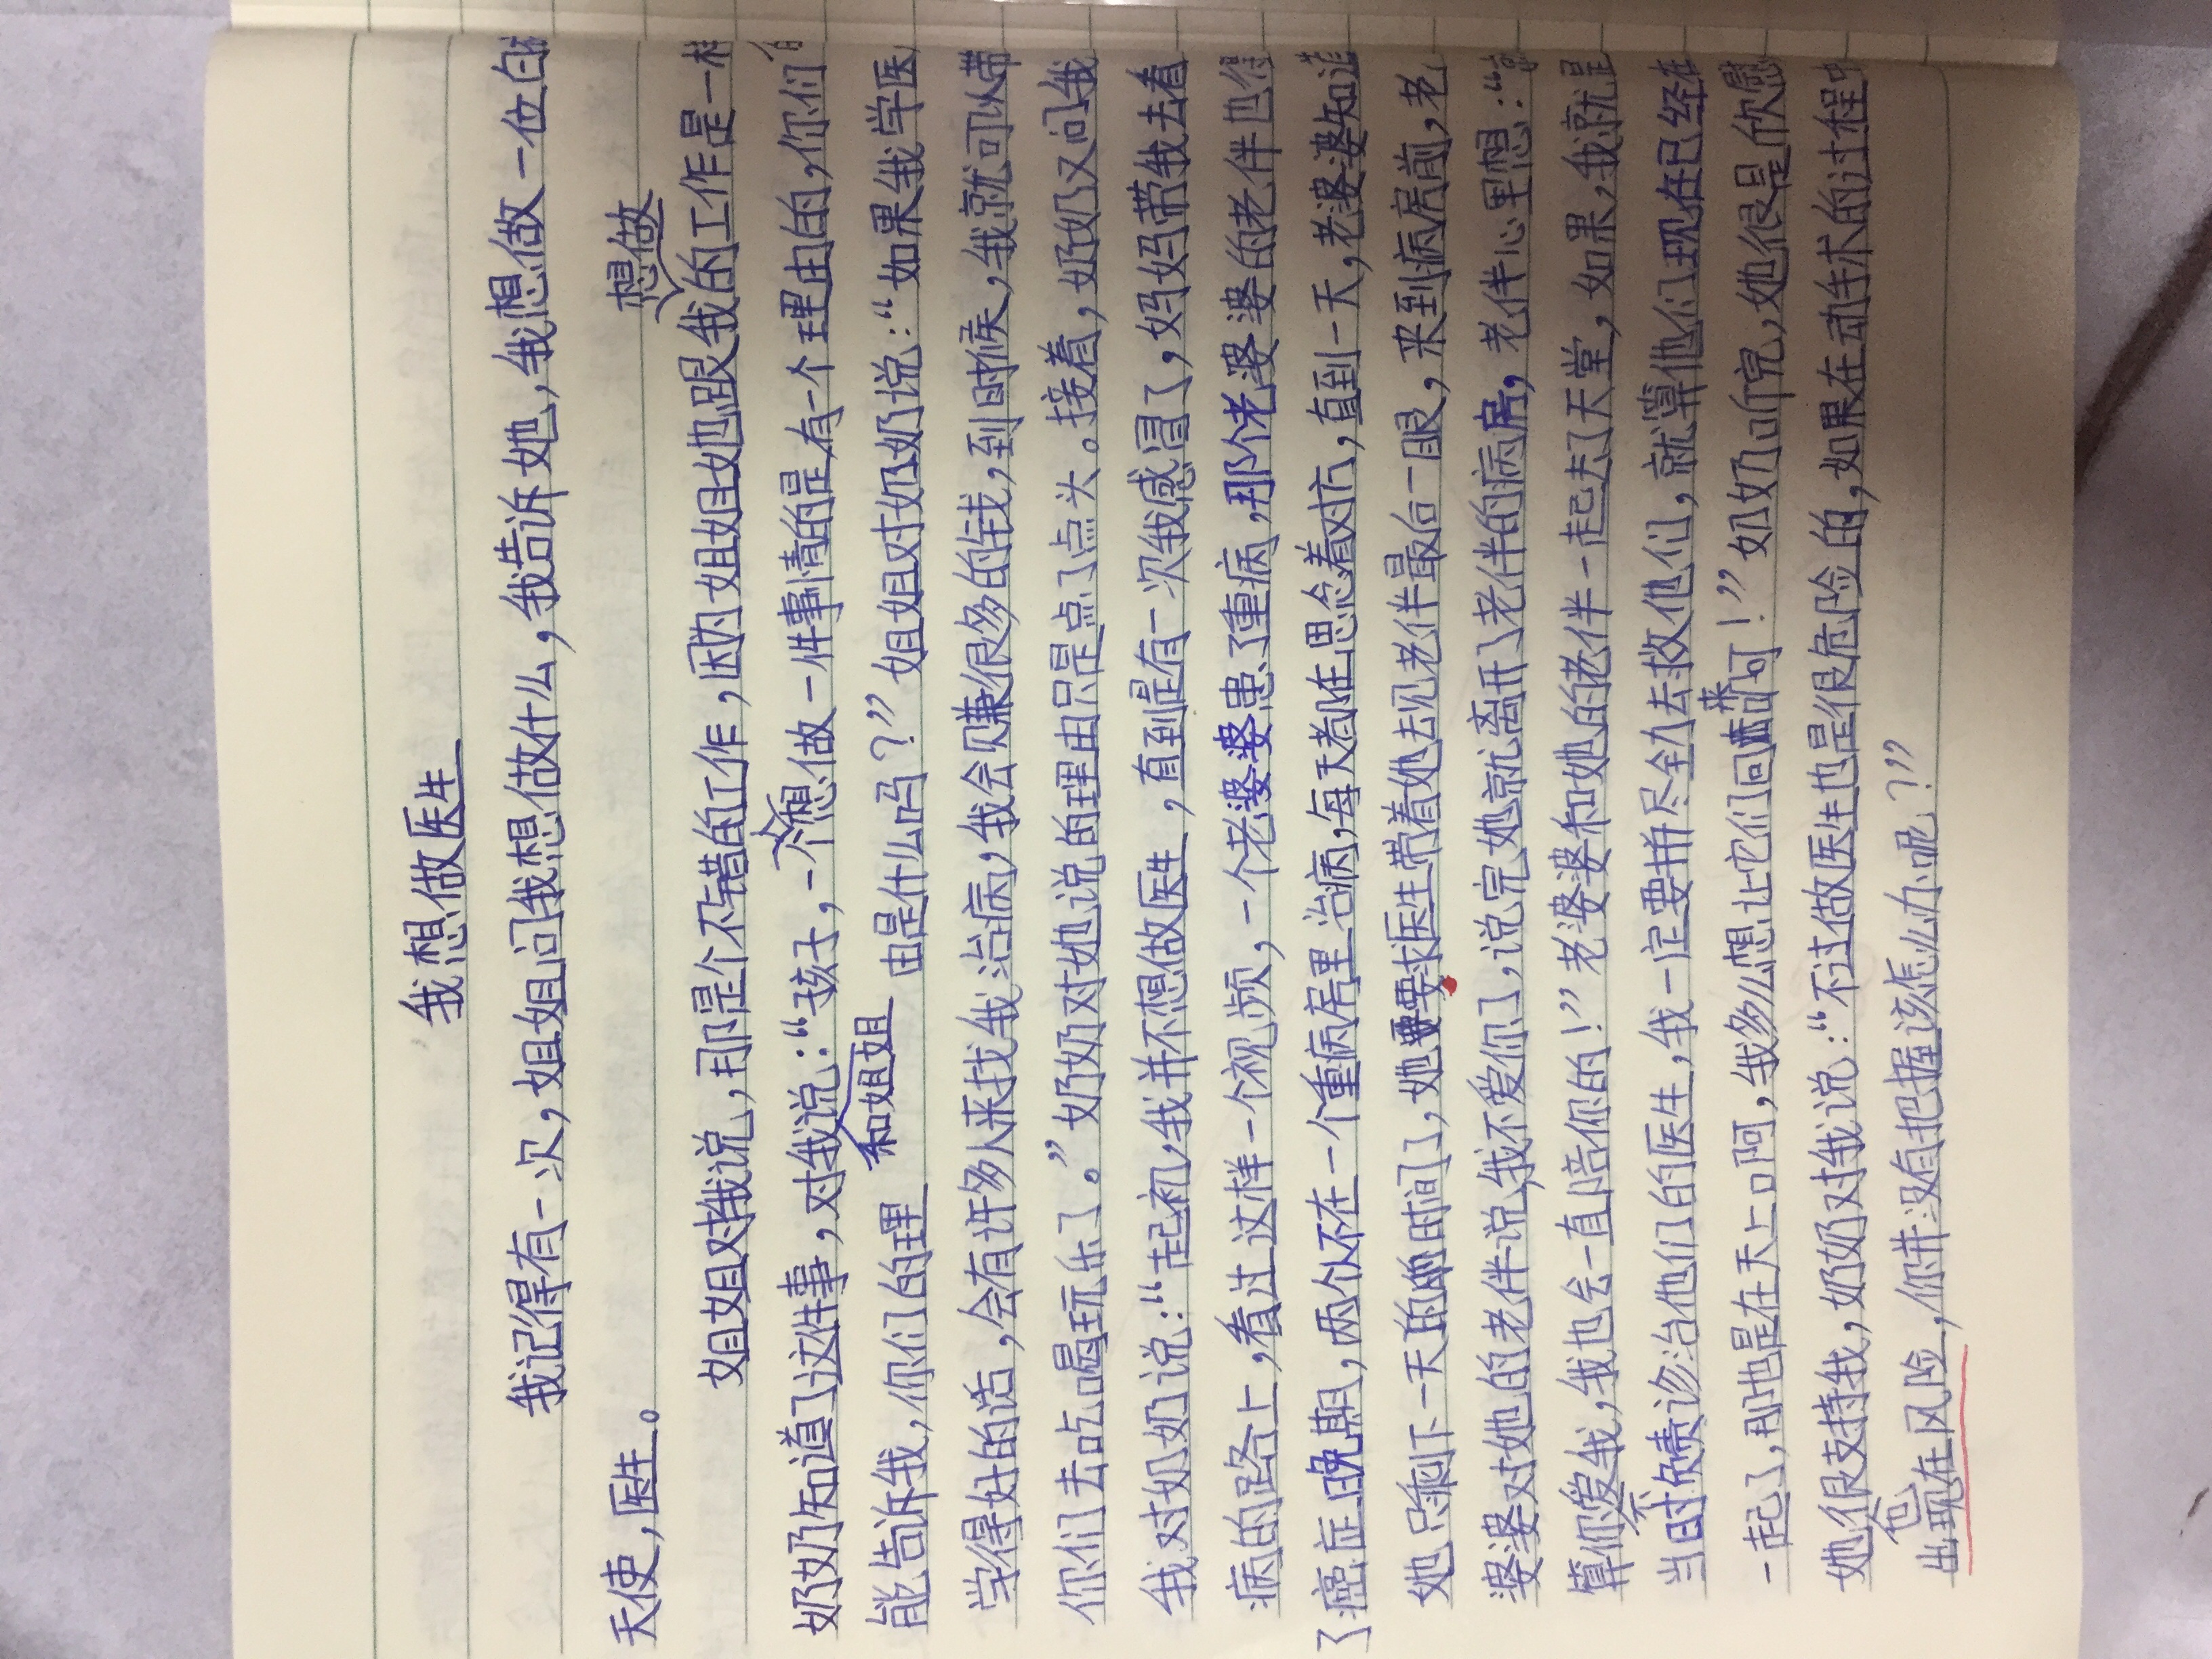 我想做医生
我记得有一次，姐姐问我想做什么，我告诉她，我想做一位白
天使，医生。
想做
姐姐对我说，那是个不错的工作，因为姐姐她跟我的工作是一样
奶奶知道了这件事，对我说：“孩子，一个想做一件事情的是有一个理由的，你们
和姐姐
能告诉我，你们的理由是什么吗？”姐姐对奶奶说：“如果我学医
学得好的话，会有许多人来找我治病，我会赚很多的钱，到时候，我就可以带
你们去吃喝玩乐了。”奶奶对她说的理由只是点了点头。接着，奶奶又问我
我对奶奶说：“起初，我并不想做医生，直到是有一次我感冒了，妈妈带我去看
病的路上，看过这样一个视频，一个老婆婆患了重病，那个老婆婆的老伴也得
了癌症晚期，两个人不在一个重病房里治病，每天都在思念着对方，直到一天，老婆婆知道
她只剩下一天的时间了，她要求医生带着她去见老伴最后一眼，来到病房前，老
婆婆对她的老伴说，我不爱你了，说完她就离开了老伴的病房，老伴心里想：“就
算你不爱我，我也会一直陪你的！”老婆婆和她的老伴一起去了天堂，如果，我就是
当时负责诊治他们的医生，我一定要拼尽全力去救他们，就算他们现在已经在
一起了，那也是在天上啊，我多么想让它们回来啊！”奶奶听完，她很是欣慰
她很支持我，奶奶对我说：“不过做医生也是很危险的，如果在动手术的过程中
出现在风险，你并没有把握该怎么办呢？”